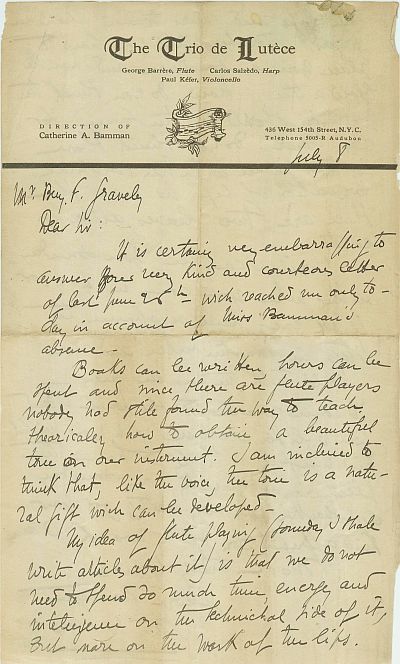 The Trio de Lutèce
George Barrère, Flute Carlos Salzédo, Harp
Paul Kéfer, Violoncello
DIRECTION OF
Catherine A. Bamman
436 West 154th Street, N.Y.C.
Telephone 5005-R Audubon
July 8
Mr. Benj. F. Gravely
Dear Sir:
It is certainly very embarrassing to
answer your very kind and courteous letter
of last June 28th wich reached me only to-
day in account of Miss Bamman's
absence –
Books can be written, hours can be
spent and since there are flute players
nobody had still found the way to teach
theoricaley how to obtain a beautiful
tone on our instrument. I am inclined to
think that, like the voice, the tone is a natu-
ral gift wich can be developed –
My idea of flute playing (someday I shale
write articles about it) is that we do not
need to spend so much time energy and
intelligence on the technichal side of it,
but more on the work of the lips.